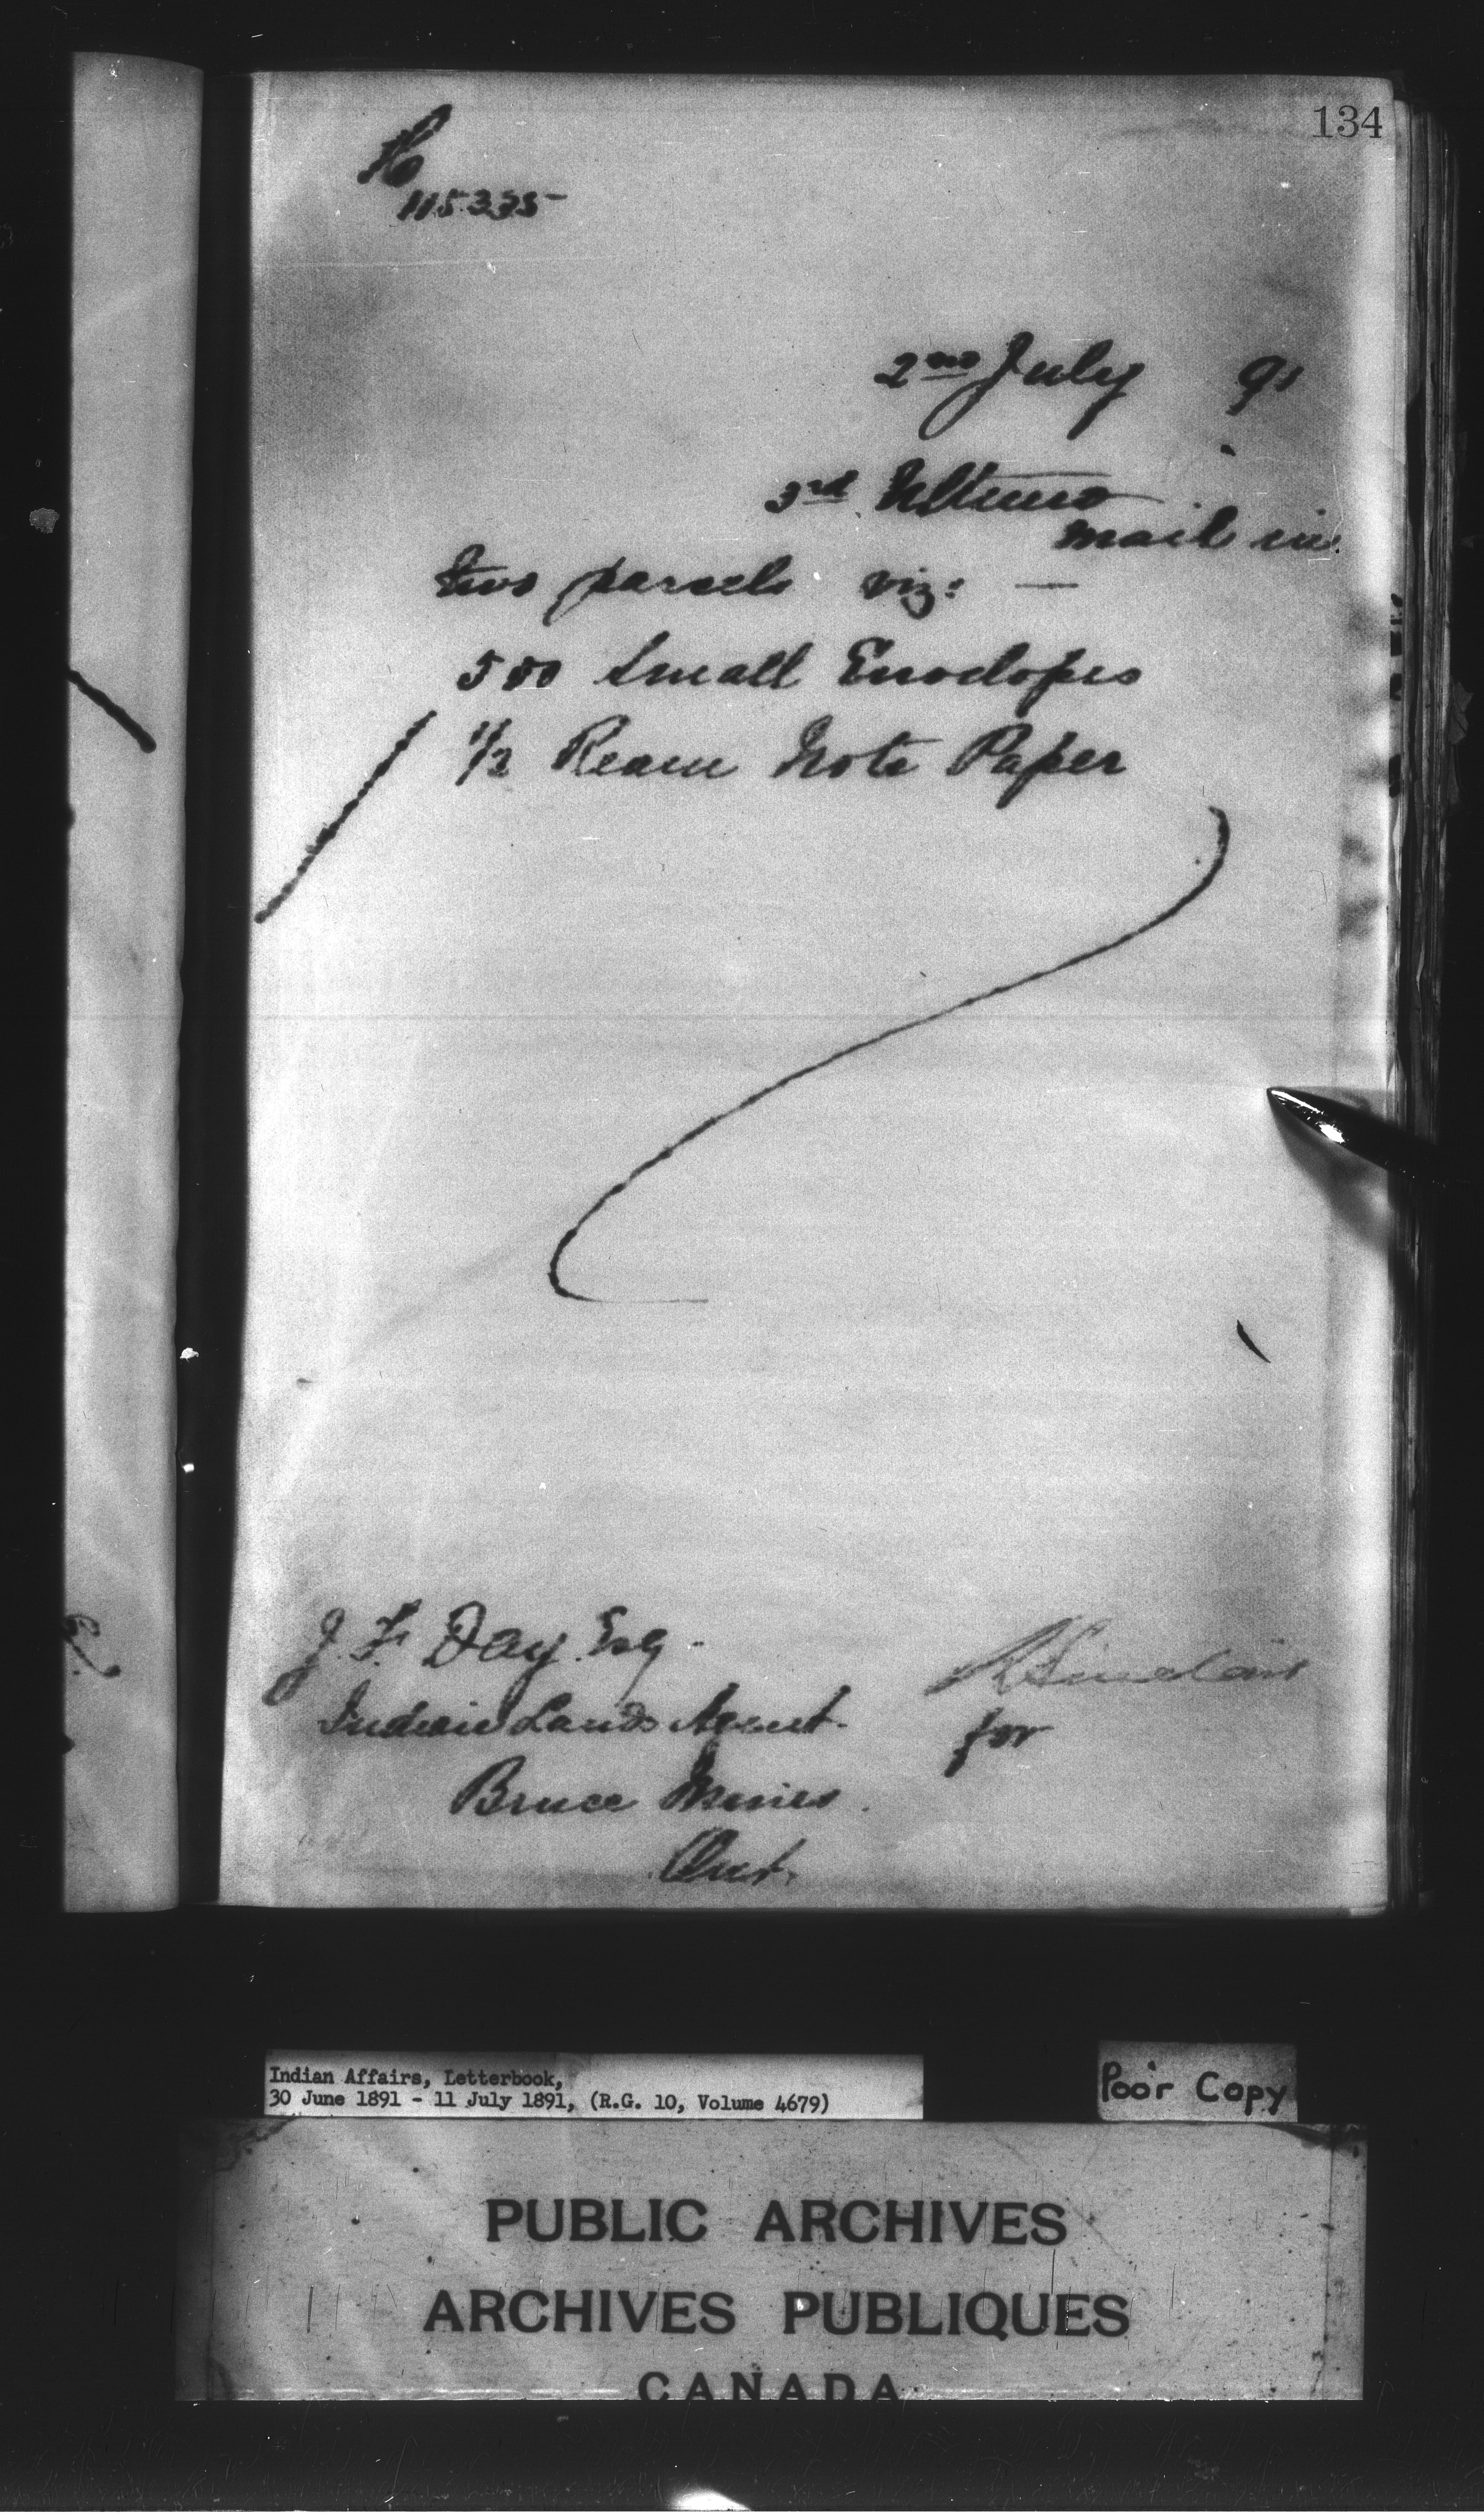 134
H
115.335
2nd July 91
3rd Ultimo
mail in
two parcels viz: —
500 Small Envelopes
1/2 Ream Note Paper
J. F. Day Esq.
R Sinclair
Indian Lands Agent.
for
Bruce Mines.
Ont.
Indian Affairs, Letterbook,
30 June 1891 - 11 July 1891, (R.G. 10, Volume 4679)
Poor Copy
PUBLIC ARCHIVES
ARCHIVES PUBLIQUES
CANADA